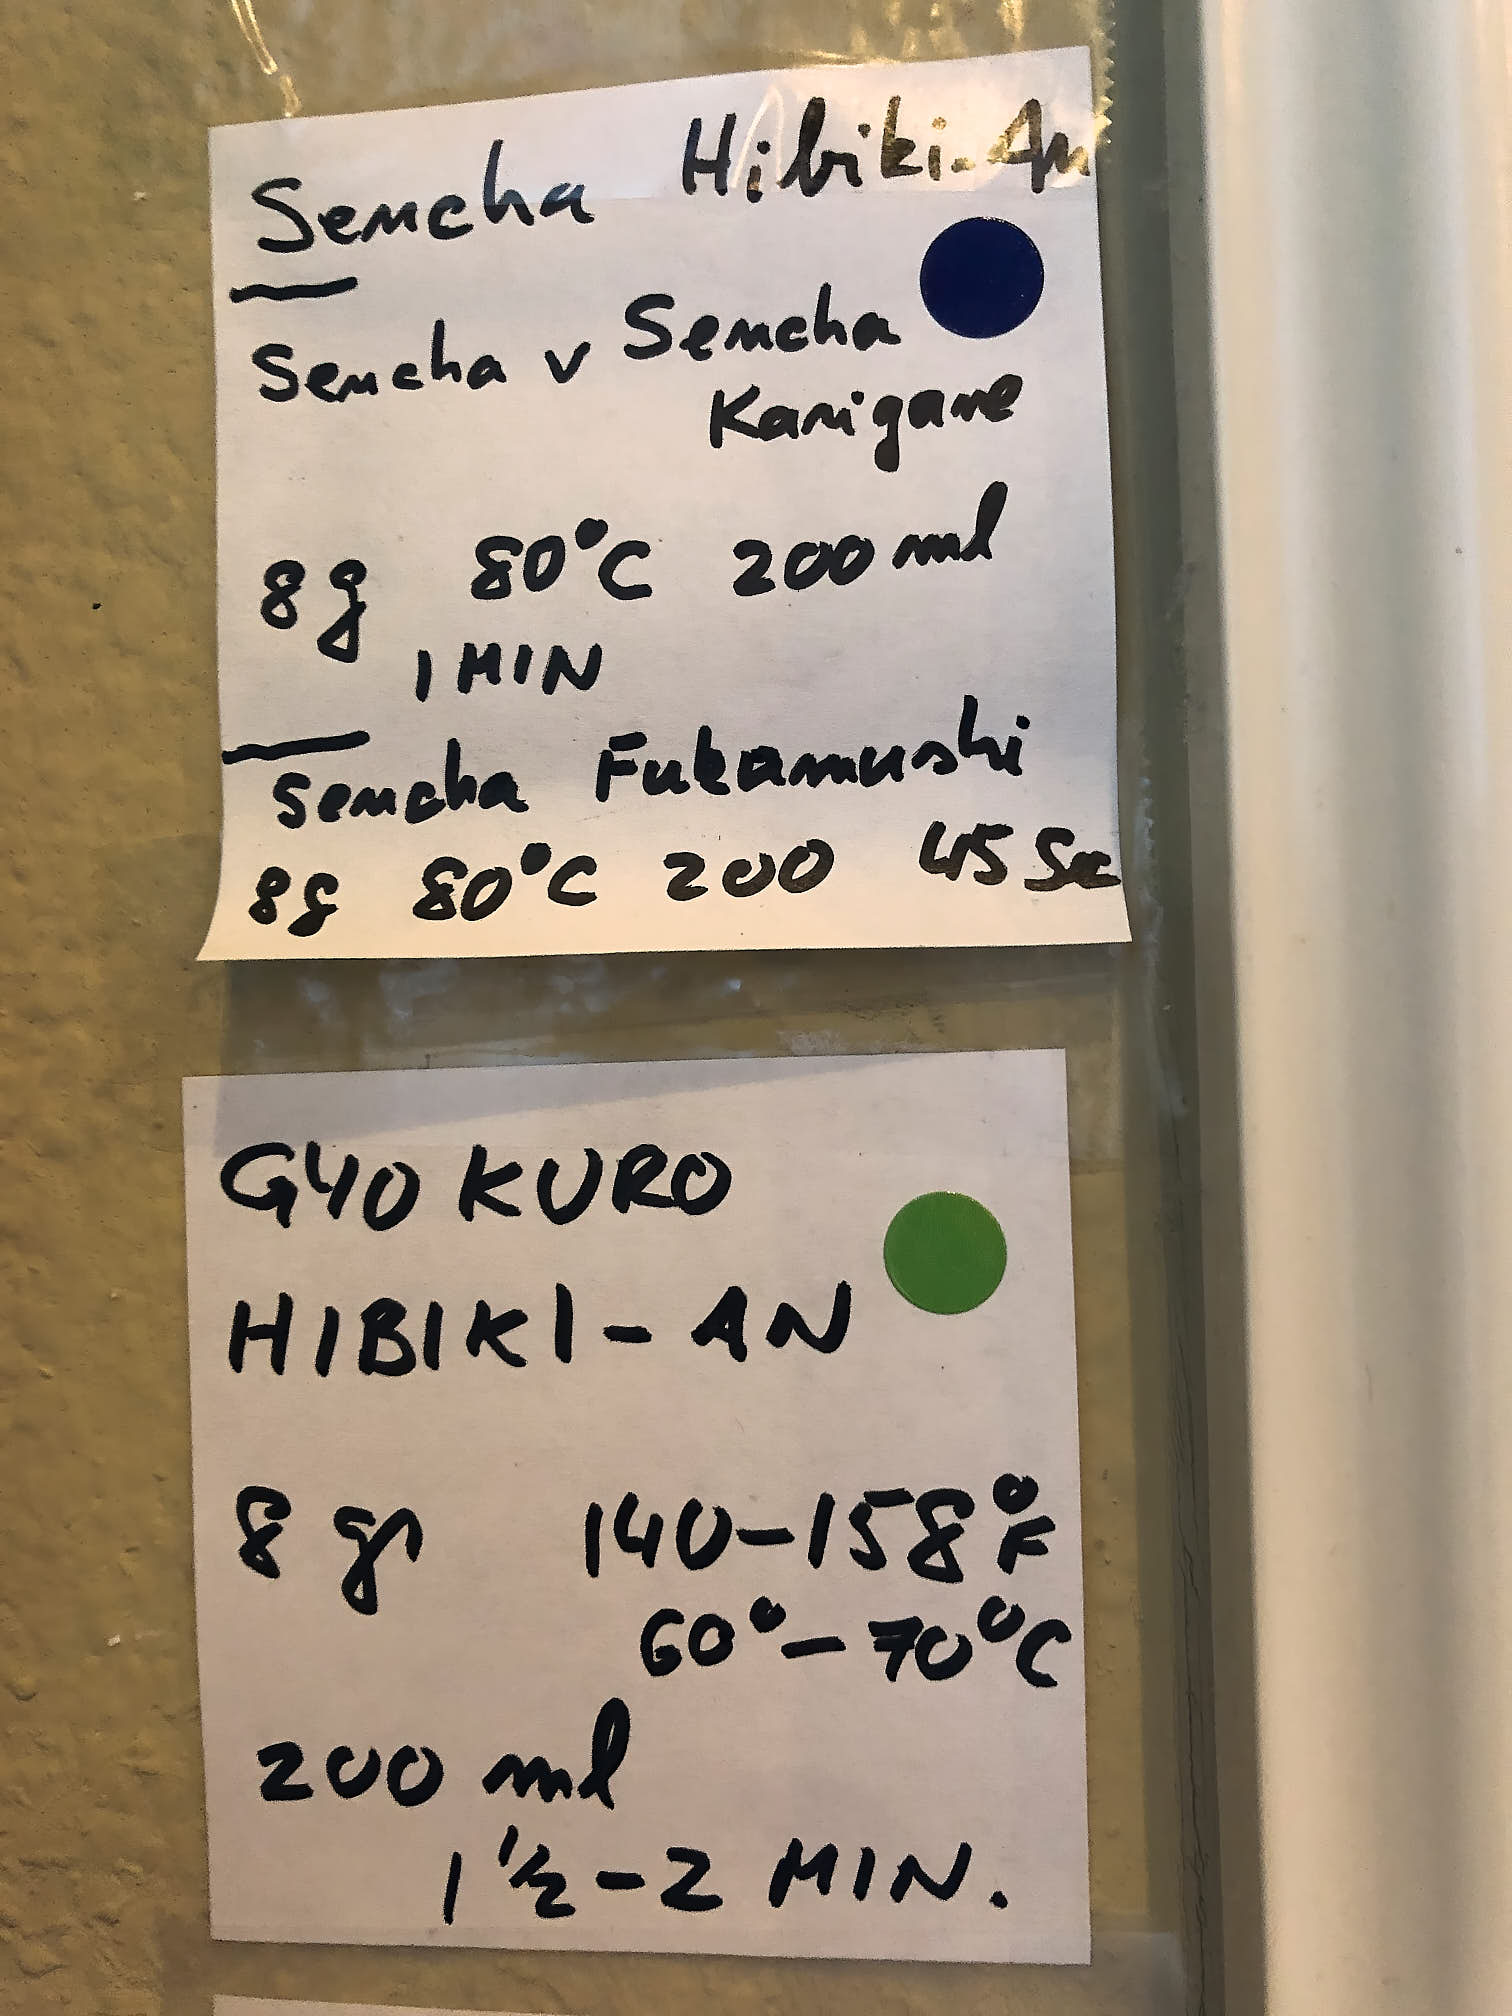 Sencha Hibiki-An
Sencha v Sencha
Karigane
8g 80°C 200 ml
1 MIN
Sencha Fukamushi
8g 80°C 200 45 Sec
GYOKURO
HIBIKI-AN
8 gr 140-158°F
60°-70°C
200 ml
1 1/2-2 MIN.